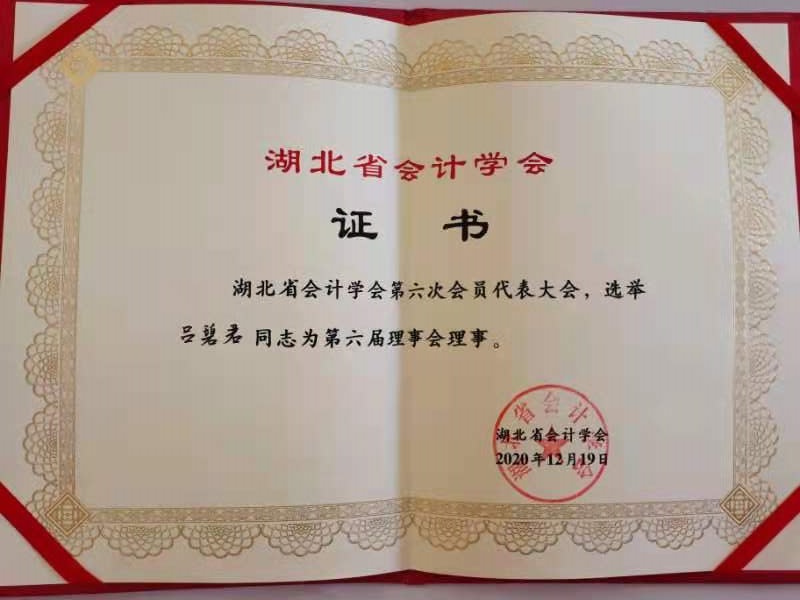 湖北省会计学会
证 书
湖北省会计学会第六次会员代表大会，选举
吕碧君 同志为第六届理事会理事。
湖北省会计学会
湖北省会计学会
2020年12月19日